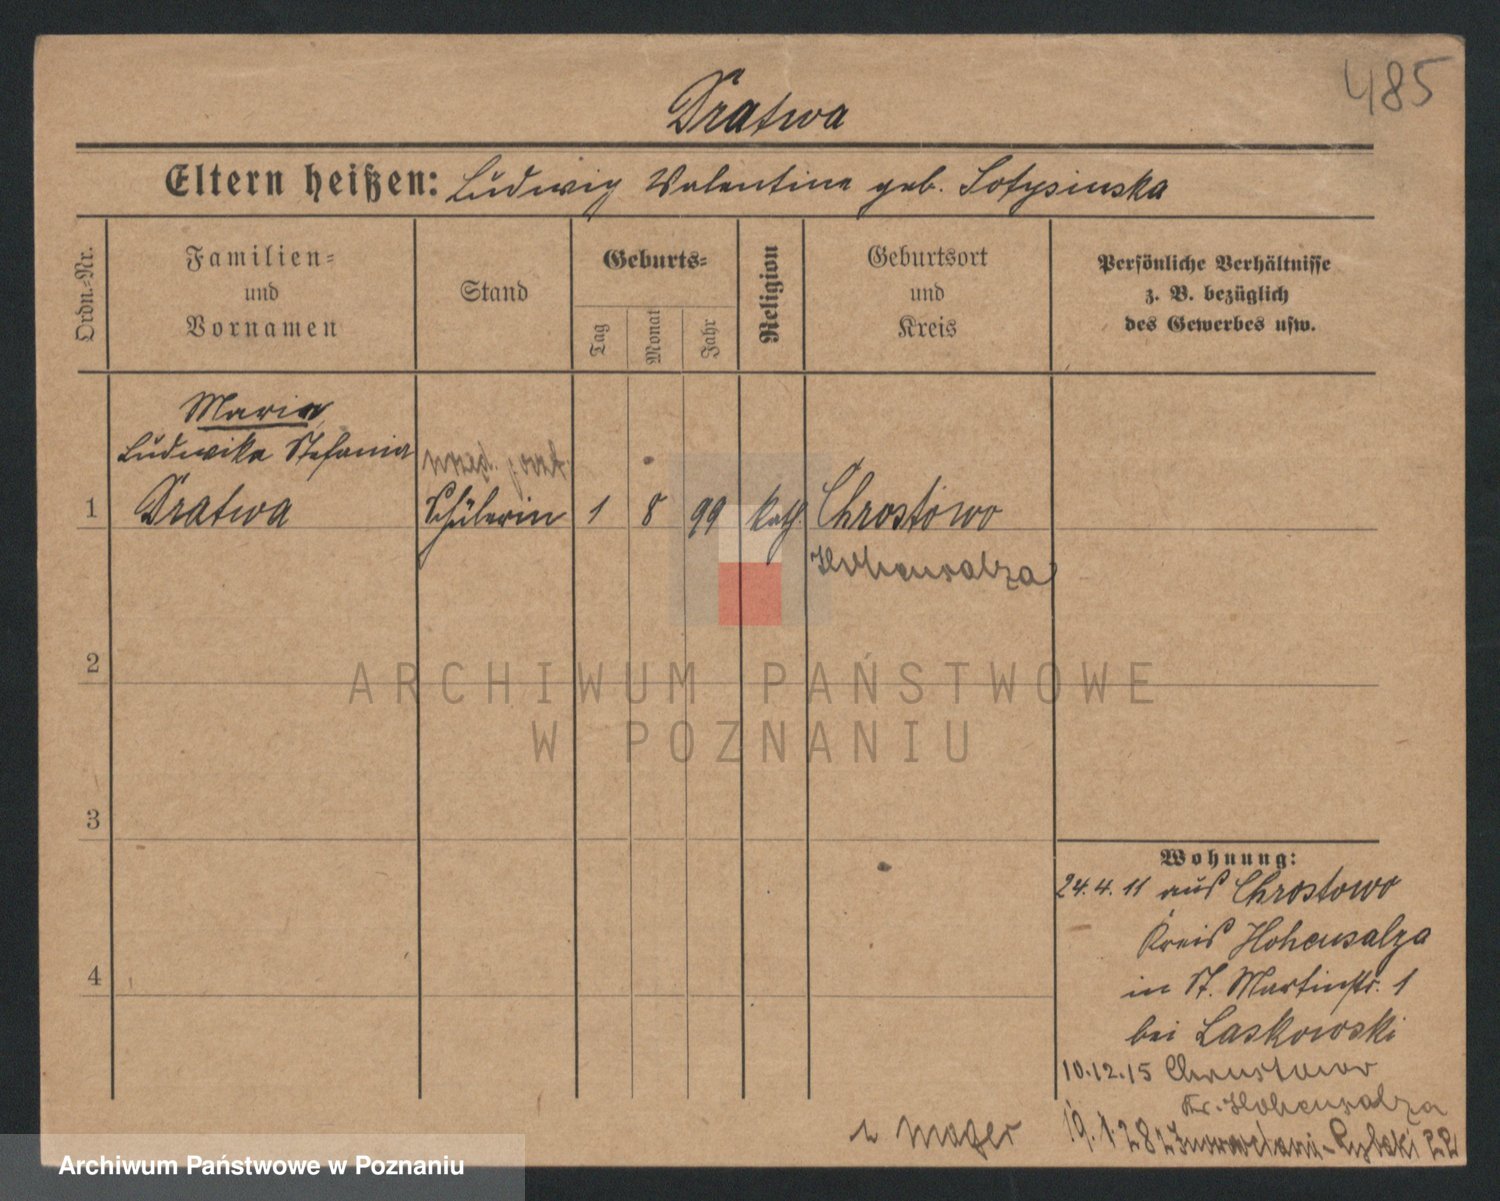 485
Dratwa
Eltern heißen: Ludwig Valentine geb. Sotysinska
Ordn.-Nr.
Familien- und Vornamen
Stand
Geburts-
Tag
Monat
Jahr
Religion
Geburtsort und Kreis
Persönliche Verhältnisse
z. B. bezüglich
des Gewerbes usw.
Maria
Ludwika Stefania
urzęd. poczt.
1 Dratwa Schülerin 1 8 99 kath. Chrostowo
Hohensalza
2
ARCHIWUM PAŃSTWOWE
W POZNANIU
3
Wohnung:
24.4.11 aus Chrostowo
Kreis Hohensalza
in St. Martinstr. 1
4
bei Laskowski
10.12.15 Chrustowo
Kr. Hohensalza
19.1.28 z Inowrocławia - Rybaki 22
Archiwum Państwowe w Poznaniu